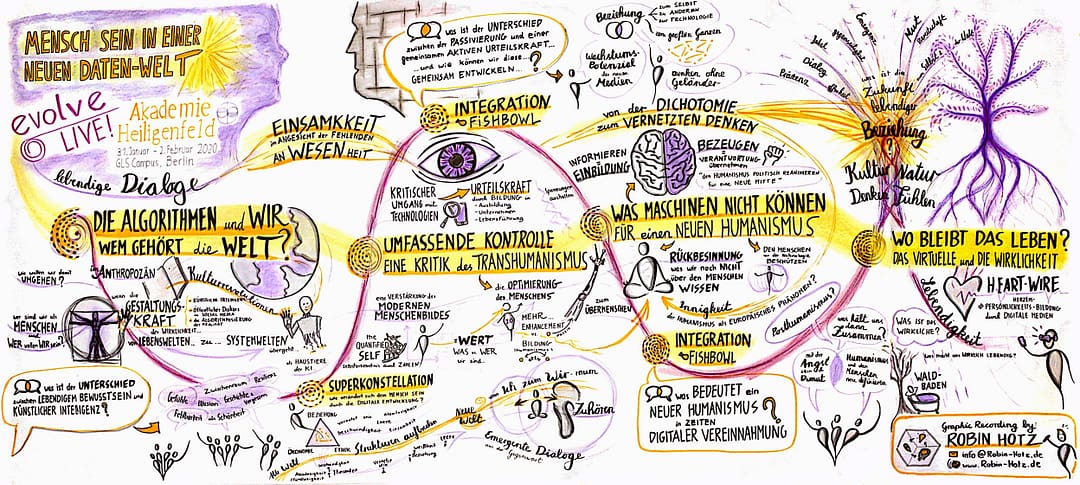 MENSCH SEIN IN EINER
NEUEN DATEN-WELT
evolve
LIVE!
Akademie
Heiligenfeld
31. Januar - 2. Februar 2020
GLS Campus, Berlin
lebendige Dialoge
EINSAMKEIT
im ANGESICHT der FEHLENDEN
AN WESEN HEIT
DIE ALGORITHMEN und WIR
WEM GEHÖRT die WELT?
Wie wollen wir damit
UMGEHEN?
ANTHROPOZÄN
Kulturevolution
wenn die
GESTALTUNGS-
KRAFT
der WIRKLICHKEIT...
von LEBENSWELTEN... zu... SYSTEMWELTEN
übergeht...
als HAUSTIERE
der K.I.
Wer sind wir als
MENSCHEN...
und
WER wollen WIR sein?
was ist der UNTERSCHIED
zwischen LEBENDIGEM BEWUSSTSEIN und
KÜNSTLICHER INTELIGENZ?
Gefühle
Fehlbarkeit als Schönheit
was ist der UNTERSCHIED
zwischen der PASSIVIERUNG und einer
gemeinsamen AKTIVEN URTEILSKRAFT...
... und wie können wir diese...
GEMEINSAM ENTWICKELN...?
INTEGRATION
FISHBOWL
Beziehung
zum SELBST
zu ANDEREN
zur TECHNOLOGIE
zum großen Ganzen
Wachstums-
Potenzial
der neuen
Medien
Denken ohne
Geländer
KRITISCHER
UMGANG mit
TECHNOLOGIEN
URTEILSKRAFT
durch BILDUNG in
- Ausbildung
- Unternehmen
- Lebensführung
Spannungen
aushalten
UMFASSENDE KONTROLLE
EINE KRITIK des TRANSHUMANISMUS
die OPTIMIERUNG
des MENSCHEN
eine VERSTÄRKUNG des
MODERNEN
MENSCHENBILDES
the
QUANTIFIED
SELF
WERT
WAS in WER
wir sind...
MEHR...
ENHANCEMENT
BILDUNG
zum
ÜBERMENSCHEN
SUPERKONSTELLATION
wie verändert sich das MENSCH SEIN
durch die DIGITALE ENTWICKLUNG?
BEZIEHUNG
ÖKONOMIE
ETHIK
Strukturen aufbrechen
Alte Welt
Neue
Welt
vom Ich zum Wir
Zuhören
Emergente Dialoge
von der DICHOTOMIE
zum VERNETZTEN DENKEN
INFORMIEREN
EINBILDUNG
BEZEUGEN
VERANTWORTUNG
übernehmen
"den HUMANISMUS POLITISCH REANIMIEREN
für EINE NEUE MITTE"
WAS MASCHINEN NICHT KÖNNEN
FÜR einen NEUEN HUMANISMUS
RÜCKBESINNUNG
was wir noch NICHT
ÜBER den MENSCHEN
WISSEN
DEN MENSCHEN
vor der TECHNOLOGIE
BESCHÜTZEN
Innigkeit
der HUMANISMUS als EUROPÄISCHES PHÄNOMEN?
Posthumanismus?
INTEGRATION
FISHBOWL
was BEDEUTET ein
NEUER HUMANISMUS
in ZEITEN
DIGITALER VEREINNAHMUNG
?
Präsenz
Dialog
was ist die
Zukunft
lebendiger
Beziehung
?
Kultur Natur
Denken Fühlen
WO BLEIBT DAS LEBEN?
DAS VIRTUELLE und DIE WIRKLICHKEIT
HEART-WIRE
HERZEN-
PERSÖNLICHKEITS-BILDUNG
durch DIGITALE MEDIEN
Lebendigkeit
WAS IST DAS
WIRKLICHE?
was hält uns
dann
Zusammen?
mit der
Angst
und
Demut
Humanismus
und den
Menschen
neu definieren
WALD-
BADEN
Graphic Recording by:
ROBIN HOTZ
info@Robin-Hotz.de
www.Robin-Hotz.de